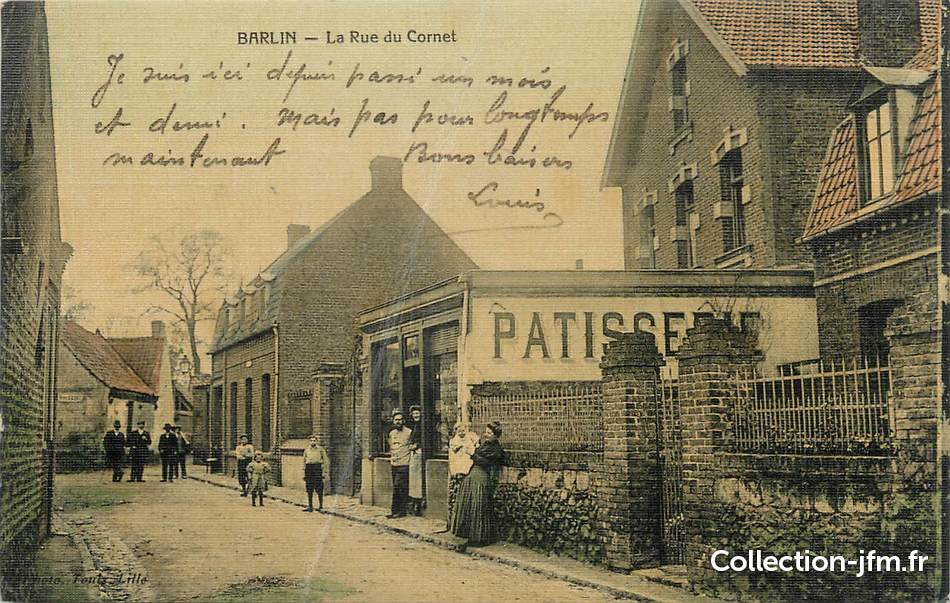 BARLIN — La Rue du Cornet
Je suis ici depuis passé un mois
et demi. Mais pas pour longtemps
maintenant Bons baisers
Louis
PATISSERIE
Photo. Lille
Collection-jfm.fr